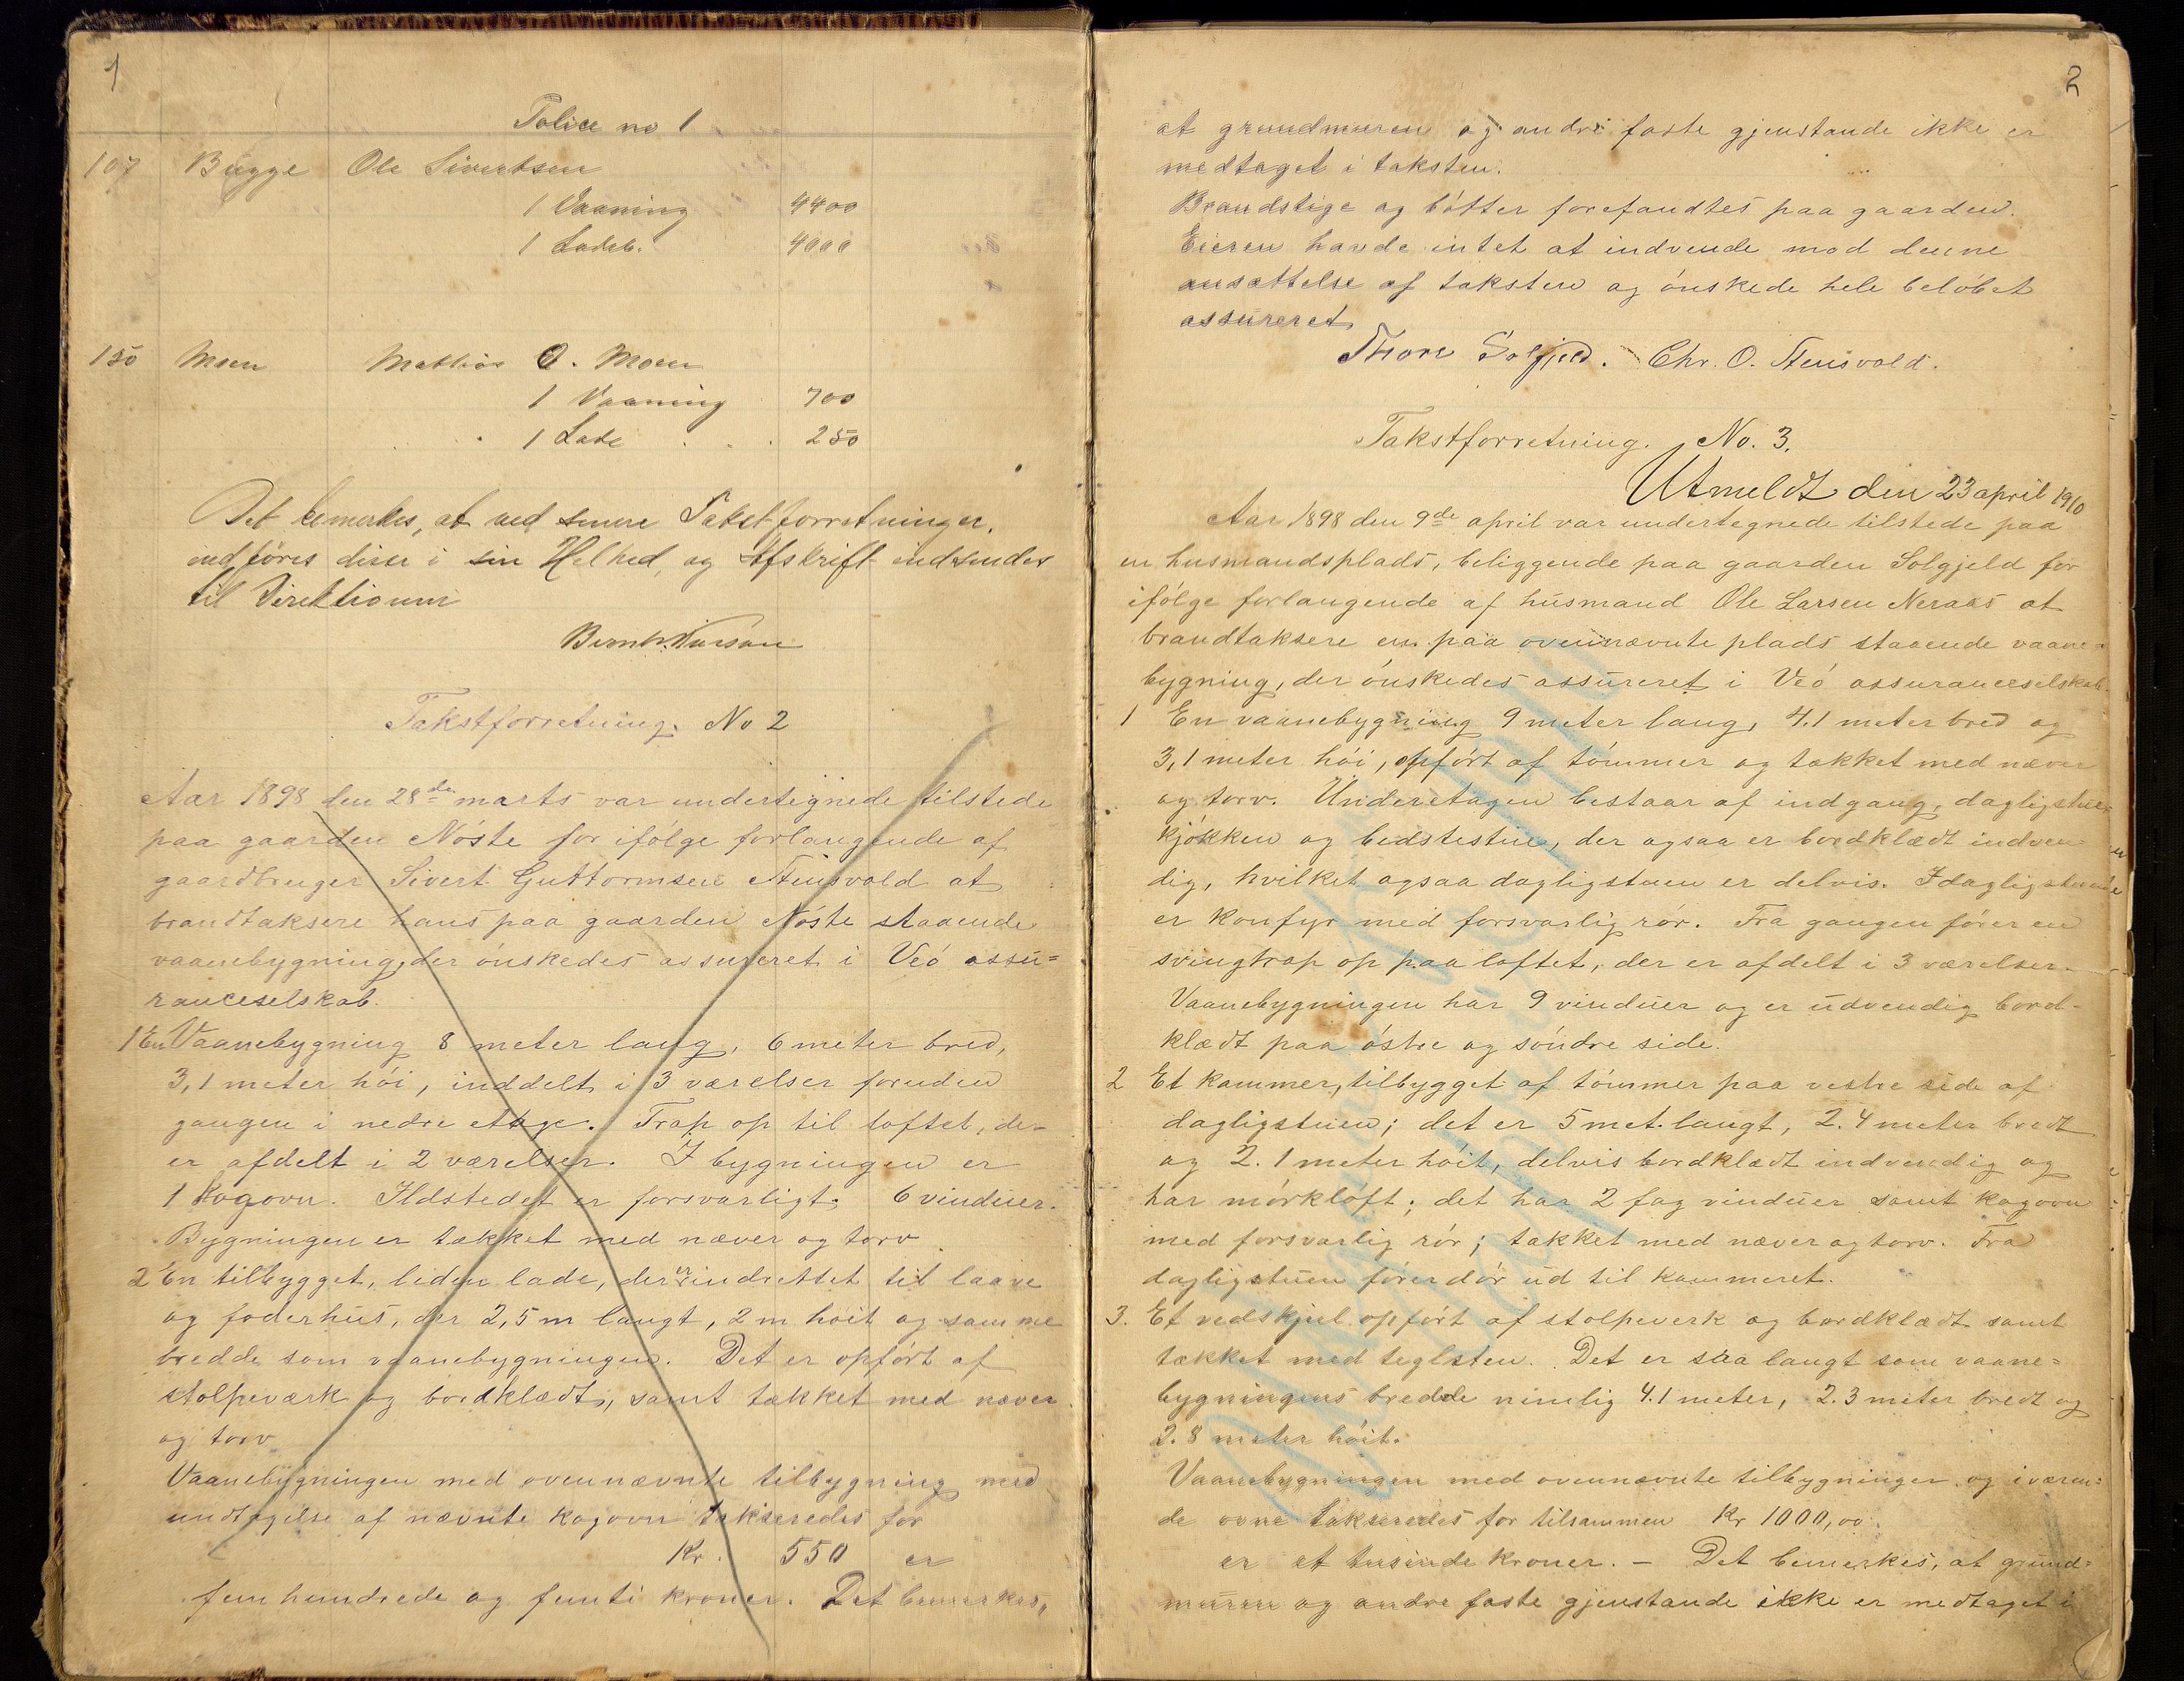 1
Police no 1
107 Bugge Ole Sivertsen
1 Vaaning 4400
1 Ladeb. 4000
150 Moen Mathias O. Moen
1 Vaaning 700
1 Lade . . . 250
Det bemerkes, at ved senere Takstforretninger,
indføres disse i sin Helhed, og Afskrift indsendes
til Direktionen
Takstforretning. No 2
Aar 1898 den 28de marts var undertegnede tilstede
paa gaarden Nöste for ifölge forlangende af
gaardbruger Sivert Guttormsen Stensvold at
brandtaksere hans paa gaarden Nöste staaende
vaanebygning, der önskedes assureret i Veö assu=
ranceselskab.
1 En Vaanebygning 8 meter lang, 6 meter bred,
3,1 meter höi, inddelt i 3 værelser foruden
gangen i nedre etage. Trap op til loftet, der
er afdelt i 2 værelser. I bygningen er
1 kogovn. Ildstedet er forsvarligt. 6 vinduer.
Bygningen er tækket med næver og torv
2 En tilbygget, liden lade, der er indrettet til laave
og foderhus, der 2,5 m langt, 2 m höit og samme
bredde som vaanebygningen. Det er opfört af
stolpeværk og bordklædt, samt tækket med næver
og torv
Vaanebygningen med ovennævnte tilbygning med
undtagelse af nævnte kogovn takseredes for
Kr. 550 er
fem hundrede og femti kroner. Det bemerkes,
2
at grundmuren og andre faste gjenstande ikke er
medtaget i taksten.
Brandstige og bötter forefandtes paa gaarden.
Eieren havde intet at indvende mod denne
ansættelse af taksten og önskede hele belöbet
assureret
Thore Solgjeld. Chr. O. Stensvold.
Takstforretning. No. 3.
Utmeldt den 23 april 1910
Aar 1898 den 9de april var undertegnede tilstede paa
en husmandsplads, beliggende paa gaarden Solgjeld for
ifölge forlangende af husmand Ole Larsen Neraas at
brandtaksere en paa ovennævnte plads staaende vaane=
bygning, der önskedes assureret i Veö assuranceselskab.
1 En vaanebygning 9 meter lang, 4.1 meter bred og
3,1 meter höi, opfört af tömmer og tækket med næver
og torv. Underetagen bestaar af indgang, dagligstue,
kjökken og bedstestue, der ogsaa er bordklædt indven
dig, hvilket ogsaa dagligstuen er delvis. I dagligstuen
er komfyr med forsvarlig rör. Fra gangen förer en
svingtrap op paa loftet, der er afdelt i 3 værelser.
Vaanebygningen har 9 vinduer og er udvendig bord-
klædt paa östre og söndre side.
2 Et kammer, tilbygget af tömmer paa vestre side af
dagligstuen; det er 5 met. langt, 2.4 meter bredt
og 2.1 meter höit, delvis bordklædt indvendig og
har mörkloft; det har 2 fag vinduer samt kogovn
med forsvarlig rör; takket med næver og torv. Fra
dagligstuen förer dör ud til kammeret.
3. Et vedskjul opfört af stolpeverk og bordklædt samt
tækket med teglsten. Det er saa langt som vaane=
bygningens bredde nemlig 4.1 meter, 2.3 meter bredt og
2.8 meter höit.
Vaanebygningen med ovennævnte tilbygninger og iværen=
de ovne takseredes for tilsammen Kr 1000,00
er et tusinde kroner. – Det bemerkes, at grund=
muren og andre faste gjenstande ikke er medtaget i